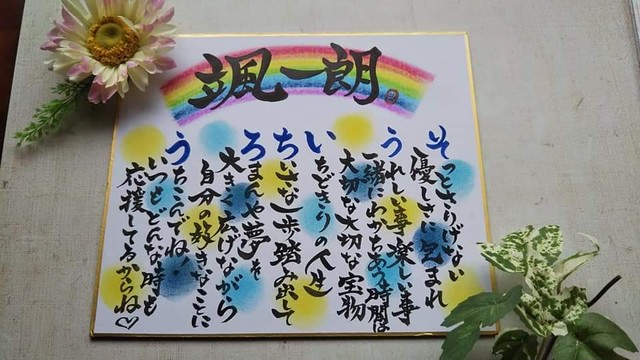 颯一朗
そっとさりげない
優しさに包まれ
うれしい事楽しい事
一緒にわかちあう時間は
大切な大切な宝物
いちどきりの人生
ちいさな一歩踏み出して
ろまんや夢を
大きく広げながら
自分の好きなことに
うちこんでね
いつもどんな時も
応援してるからね♡